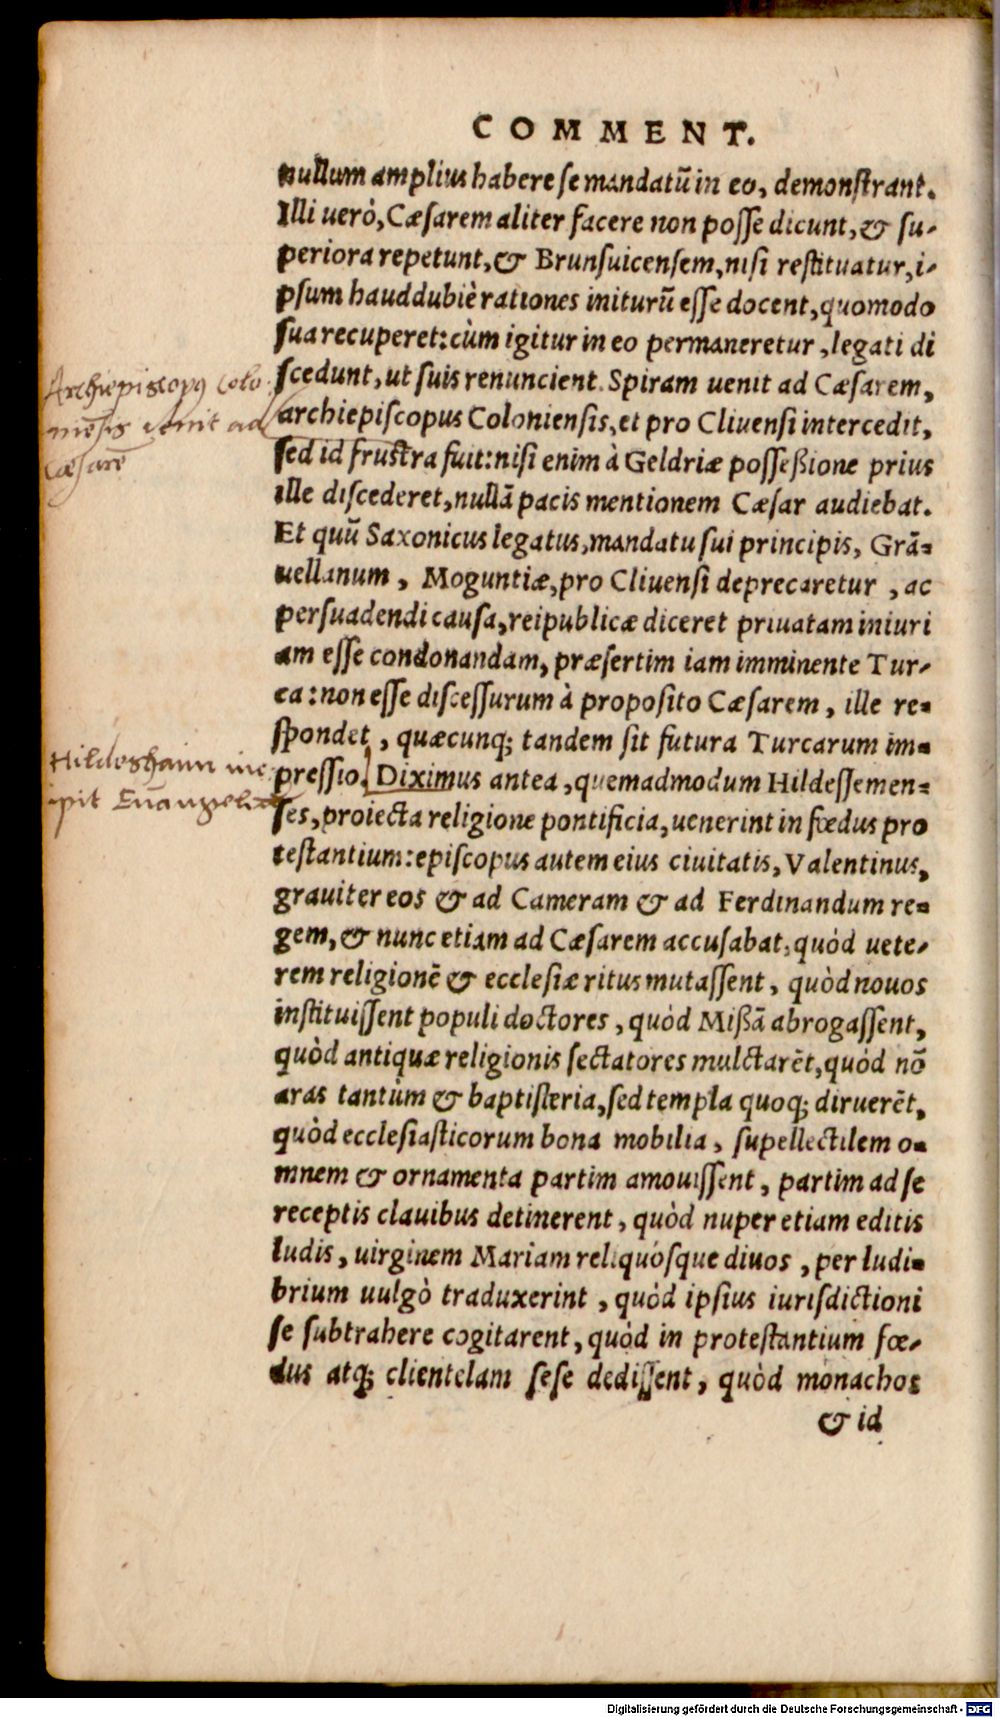 COMMENT.
nullum amplius habere se mandatū in eo, demonstrant.
Illi uerò, Cæsarem aliter facere non posse dicunt, & su-
periora repetunt, & Brunsuicensem, nisi restituatur, i-
psum hauddubiè rationes initurū esse docent, quomodo
sua recuperet: cùm igitur in eo permaneretur, legati di
scedunt, ut suis renuncient. Spiram uenit ad Cæsarem,
archiepiscopus Coloniensis, et pro Cliuensi intercedit,
sed id frustra fuit: nisi enim à Geldriæ posseßione prius
ille discederet, nullā pacis mentionem Cæsar audiebat.
Et quū Saxonicus legatus, mandatu sui principis, Grā-
uellanum, Moguntiæ, pro Cliuensi deprecaretur, ac
persuadendi causa, reipublicæ diceret priuatam iniuri
am esse condonandam, præsertim iam imminente Tur-
ca: non esse discessurum à proposito Cæsarem, ille re-
spondet, quæcunq; tandem sit futura Turcarum im-
pressio. Diximus antea, quemadmodum Hildessemen-
ses, proiecta religione pontificia, uenerint in fœdus pro
testantium: episcopus autem eius ciuitatis, Valentinus,
grauiter eos & ad Cameram & ad Ferdinandum re-
gem, & nunc etiam ad Cæsarem accusabat, quòd uete-
rem religionē & ecclesiæ ritus mutassent, quòd nouos
instituissent populi doctores, quòd Mißā abrogassent,
quòd antiquæ religionis sectatores mulctarēt, quòd nō
aras tantùm & baptisteria, sed templa quoq; diruerēt,
quòd ecclesiasticorum bona mobilia, supellectilem o-
mnem & ornamenta partim amouissent, partim ad se
receptis clauibus detinerent, quòd nuper etiam editis
ludis, uirginem Mariam reliquósque diuos, per ludi-
brium uulgò traduxerint, quòd ipsius iurisdictioni
se subtrahere cogitarent, quòd in protestantium fœ-
dus atq; clientelam sese dedissent, quòd monachos
& id
Archiepiscopꝰ Colo
niēsis venit ad
Cæsarē
Hildeshaim inc
ipit Euangeliū
Digitalisierung gefördert durch die Deutsche Forschungsgemeinschaft - DFG